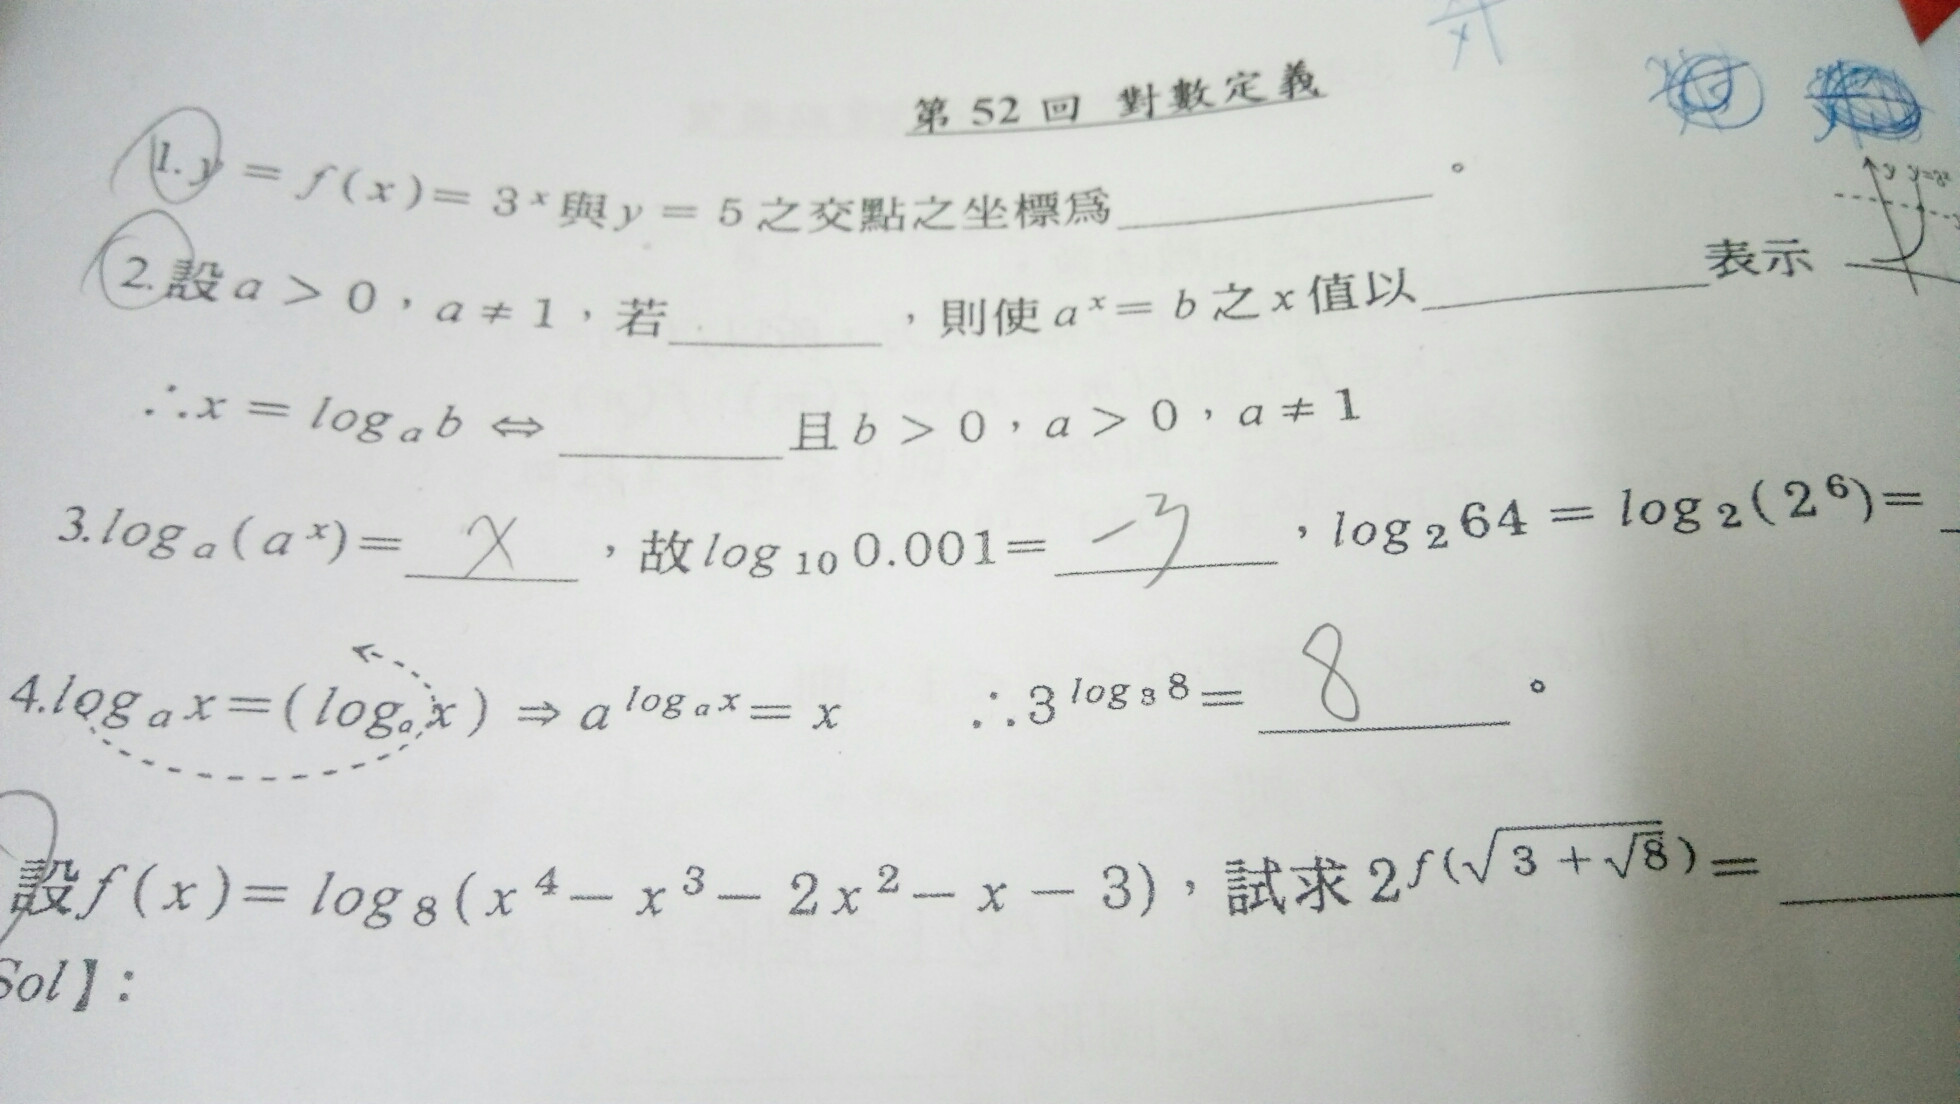 第 52 回 對數定義
1. y = f(x) = 3^x 與 y = 5 之交點之坐標為____________。
2. 設 a > 0，a ≠ 1，若________，則使 a^x = b 之 x 值以____________表示
∴ x = log_a b ⇔ ________ 且 b > 0，a > 0，a ≠ 1
3. log_a (a^x) = x，故 log_10 0.001 = -3，log_2 64 = log_2 (2^6) =
4. log_a x = (log_a x) ⇒ a^(log_a x) = x ∴ 3^(log_3 8) = 8。
設 f(x) = log_8 (x^4 - x^3 - 2x^2 - x - 3)，試求 2^f(√(3 + √8)) = ________
Sol】: